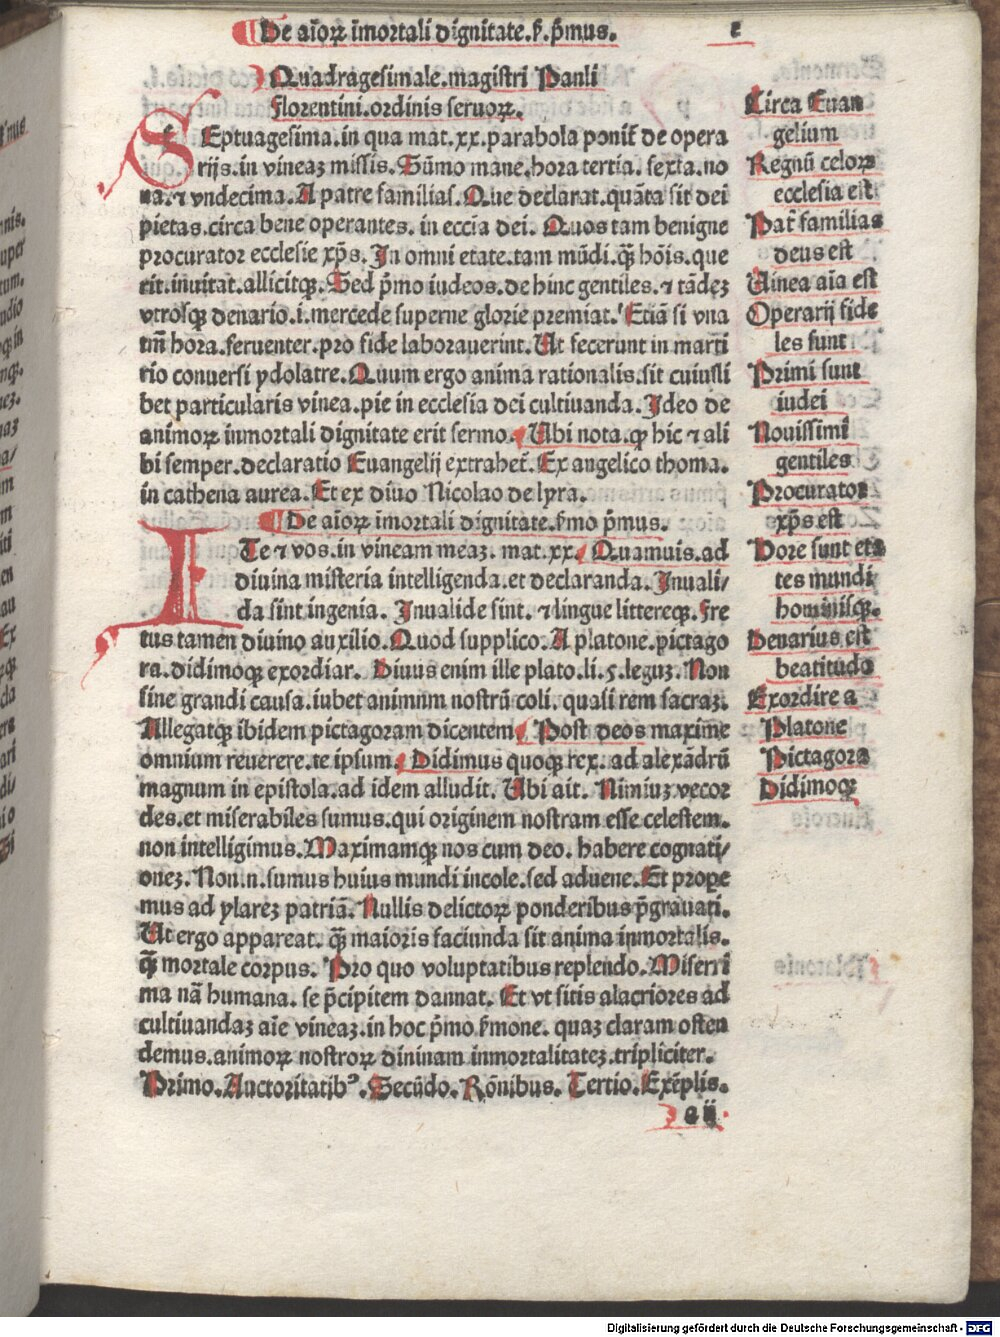 De aīoꝝ īmortali dignitate.ẜ.p̄mus. c
Quadragesimale.magistri Pauli
florentini.ordinis seruoꝝ.
SEptuagesima.in qua mat.xx.parabola poniť de opera
rijs.in vineaꝫ missis.Sūmo mane.hora tertia.sexta.no
na.⁊ vndecima.A patre familiaſ.Que declarat.quāta sit dei
pietas.circa bene operantes.in eccīa dei.Quos tam benigne
procurator ecclesie xp̄s.In omni etate.tam mūdi.qꝫ̄ hoīs.que
rit.inuitat.allicitqꝫ.Sed p̄mo iudeos.de hinc gentiles.⁊ tādeꝫ
vtrosqꝫ denario.i.mercede superne glorie premiat.Etiā si vna
tm̄ hora.feruenter.pro fide laborauerint.Ut fecerunt in marti
rio conuersi ydolatre.Quum ergo anima rationalis.sit cuiusli
bet particularis vinea.pie in ecclesia dei cultiuanda.Ideo de
animoꝝ inmortali dignitate erit sermo.Ubi nota.ꝙ hic ⁊ ali
bi semper.declaratio Euangelij extraheť.Ex angelico thoma.
in cathena aurea.Et ex diuo Nicolao de lyra.
De aīoꝝ īmortali dignitate.ẜmo p̄mus.
ITe ⁊ vos.in vineam meaꝫ.mat.xx.Quamuis.ad
diuina misteria intelligenda.et declaranda.Inuali/
da sint ingenia.Inualide sint.⁊ lingue littereqꝫ.Fre
tus tamen diuino auxilio.Quod supplico.A platone.pictago
ra.didimoqꝫ exordiar.Diuus enim ille plato.li.5.leguꝫ.Non
sine grandi causa.iubet animum nostrū coli.quasi rem sacraꝫ.
Allegatqꝫ ibidem pictagoram dicentem.Post deos maxime
omnium reuerere.te ipsum.Didimus quoqꝫ rex.ad alexādrū
magnum in epistola.ad idem alludit.Ubi ait.Nimiuꝫ vecor
des.et miserabiles sumus.qui originem nostram esse celestem.
non intelligimus.Maximamqꝫ nos cum deo.habere cognati/
oneꝫ.Non.n.sumus huius mundi incole.sed aduene.Et prope
mus ad ylareꝫ patriā.Nullis delictoꝝ ponderibus p̄grauati.
Ut ergo appareat.qꝫ̄ maioris faciunda sit anima inmortalis.
qꝫ̄ mortale corpus.Pro quo voluptatibus replendo.Miserri
ma nā humana.se p̄cipitem dannat.Et vt sitis alacriores ad
cultiuandaꝫ aīe vineaꝫ.in hoc p̄mo ẜmone.quaꝫ claram osten
demus.animoꝝ nostroꝝ diuinam inmortalitateꝫ.tripliciter.
Primo.Auctoritatibꝰ.Secūdo.Rōnibus.Tertio.Exēplis.
a ij
Circa Euan
gelium
Regnū celoꝝ
ecclesia est
Pať familias
deus est
Uinea aīa est
Operarij fide
les sunt
Primi sunt
iudei
Nouissimi
gentiles
Procurator
xp̄s est
Hore sunt eta
tes mundi
hominisqꝫ.
Denarius est
beatitudo
Exordire a
Platone
Pictagora
Didimoqꝫ
Digitalisierung gefördert durch die Deutsche Forschungsgemeinschaft - DFG